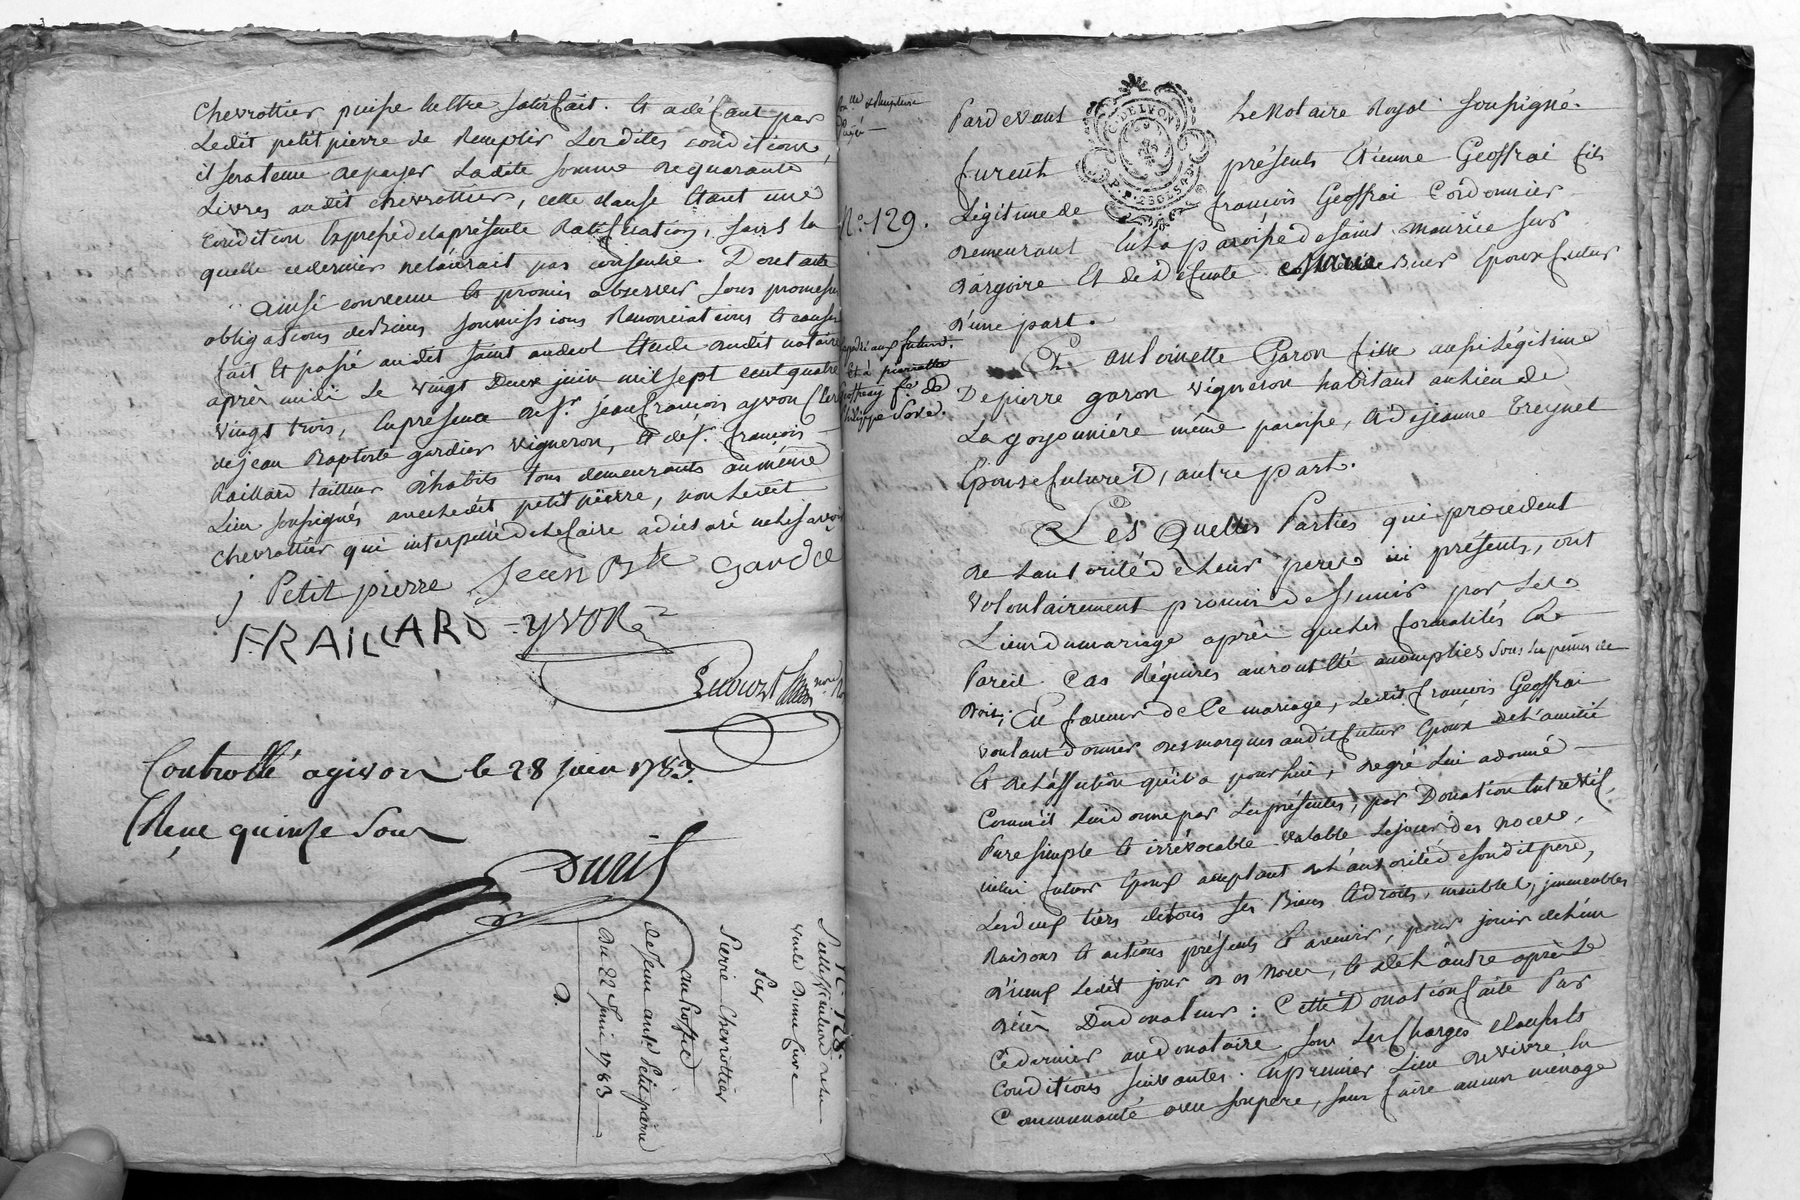 Chevrottier puisse l'etre satisfait. Et a défaut par
Ledit petit pierre de Remplir Lesdites conditions,
il sera tenu de payer Ladite somme de quarante
Livres audit chevrottier, cette clause Etant une
condition Expresse de la présente Ratification, sans la
quelle ce dernier ne l'aurait pas consentie. Dont acte
ainsi convenu Et promis observer sous promesses
obligations de Biens soumissions Renonciations Et clauses
fait Et passé audit saint andeol Etude dudit notaire
après midi Le vingt Deux juin mil sept cent quatre
vingt trois, En présence de Sr. jean françois ayvon
de jean Baptiste gardier vigneron, Et de Sr. françois
Raillard tailleur d'habits tous demeurants au même
Lieu soussignés avec Ledit petit pierre, non Ledit
chevrottier qui interpellé de le faire a déclaré ne le savoir
j Petit pierre Jean Bte Gardié
FRAILLARD yvon
Controllé a givors le 28 juin 1783.
Reçu quinze sous
Duril
N. 128.
vente d'une cuve
Par
Pierre Chevrottier
au Proffit
de Jean Petit pierre
Du 22 Juin 1783
N°. 129.
Et à pierrette
geoffray fe. de
philippe
C. DE LYON
Pardevant Le Notaire Royal soussigné.
furent présents Etienne Geoffrai fils
Légitime de françois Geoffrai Cordonnier
demeurant En La paroisse de saint maurice sur
dargoire Et de Défunte Marie Epoux futur
d'une part.
Et antoinette Garon fille aussi Légitime
De pierre garon vigneron habitant au lieu de
La goyonnière même paroisse, Et de jeanne Treynet
Epouse future d'autre part.
Les Quelles Parties qui procedent
de L'autorité de Leurs peres ici présents, ont
volontairement promis de s'unir par Les
Liens du mariage après que Les formalités En
Pareil Cas Requises auront été accomplies sous les peines de
droit; En faveur de Ce mariage, Ledit françois Geoffrai
voulant donner des marques audit futur Epoux de L'amitié
Et de L'affection qu'il a pour lui, de gré Lui a donné
Comme il Lui donne par Les présentes, par Donation Entre vifs,
Pure simple Et irrévocable valable Le jour des noces,
icelui futur Epoux acceptant de L'autorité de son dit pere,
Les deux tiers de tous ses Biens Et droits, meubles, immeubles
Raisons Et actions présents Et avenir, pour jouir de L'un
d'iceux Ledit jour des noces, Et de L'autre après Le
décès Du donateur: Cette Donation faite Par
Ce dernier au donataire sous Les Charges Clauses Et
Conditions suivantes. En premier Lieu de vivre En
Communauté avec son pere, sans faire aucun ménage